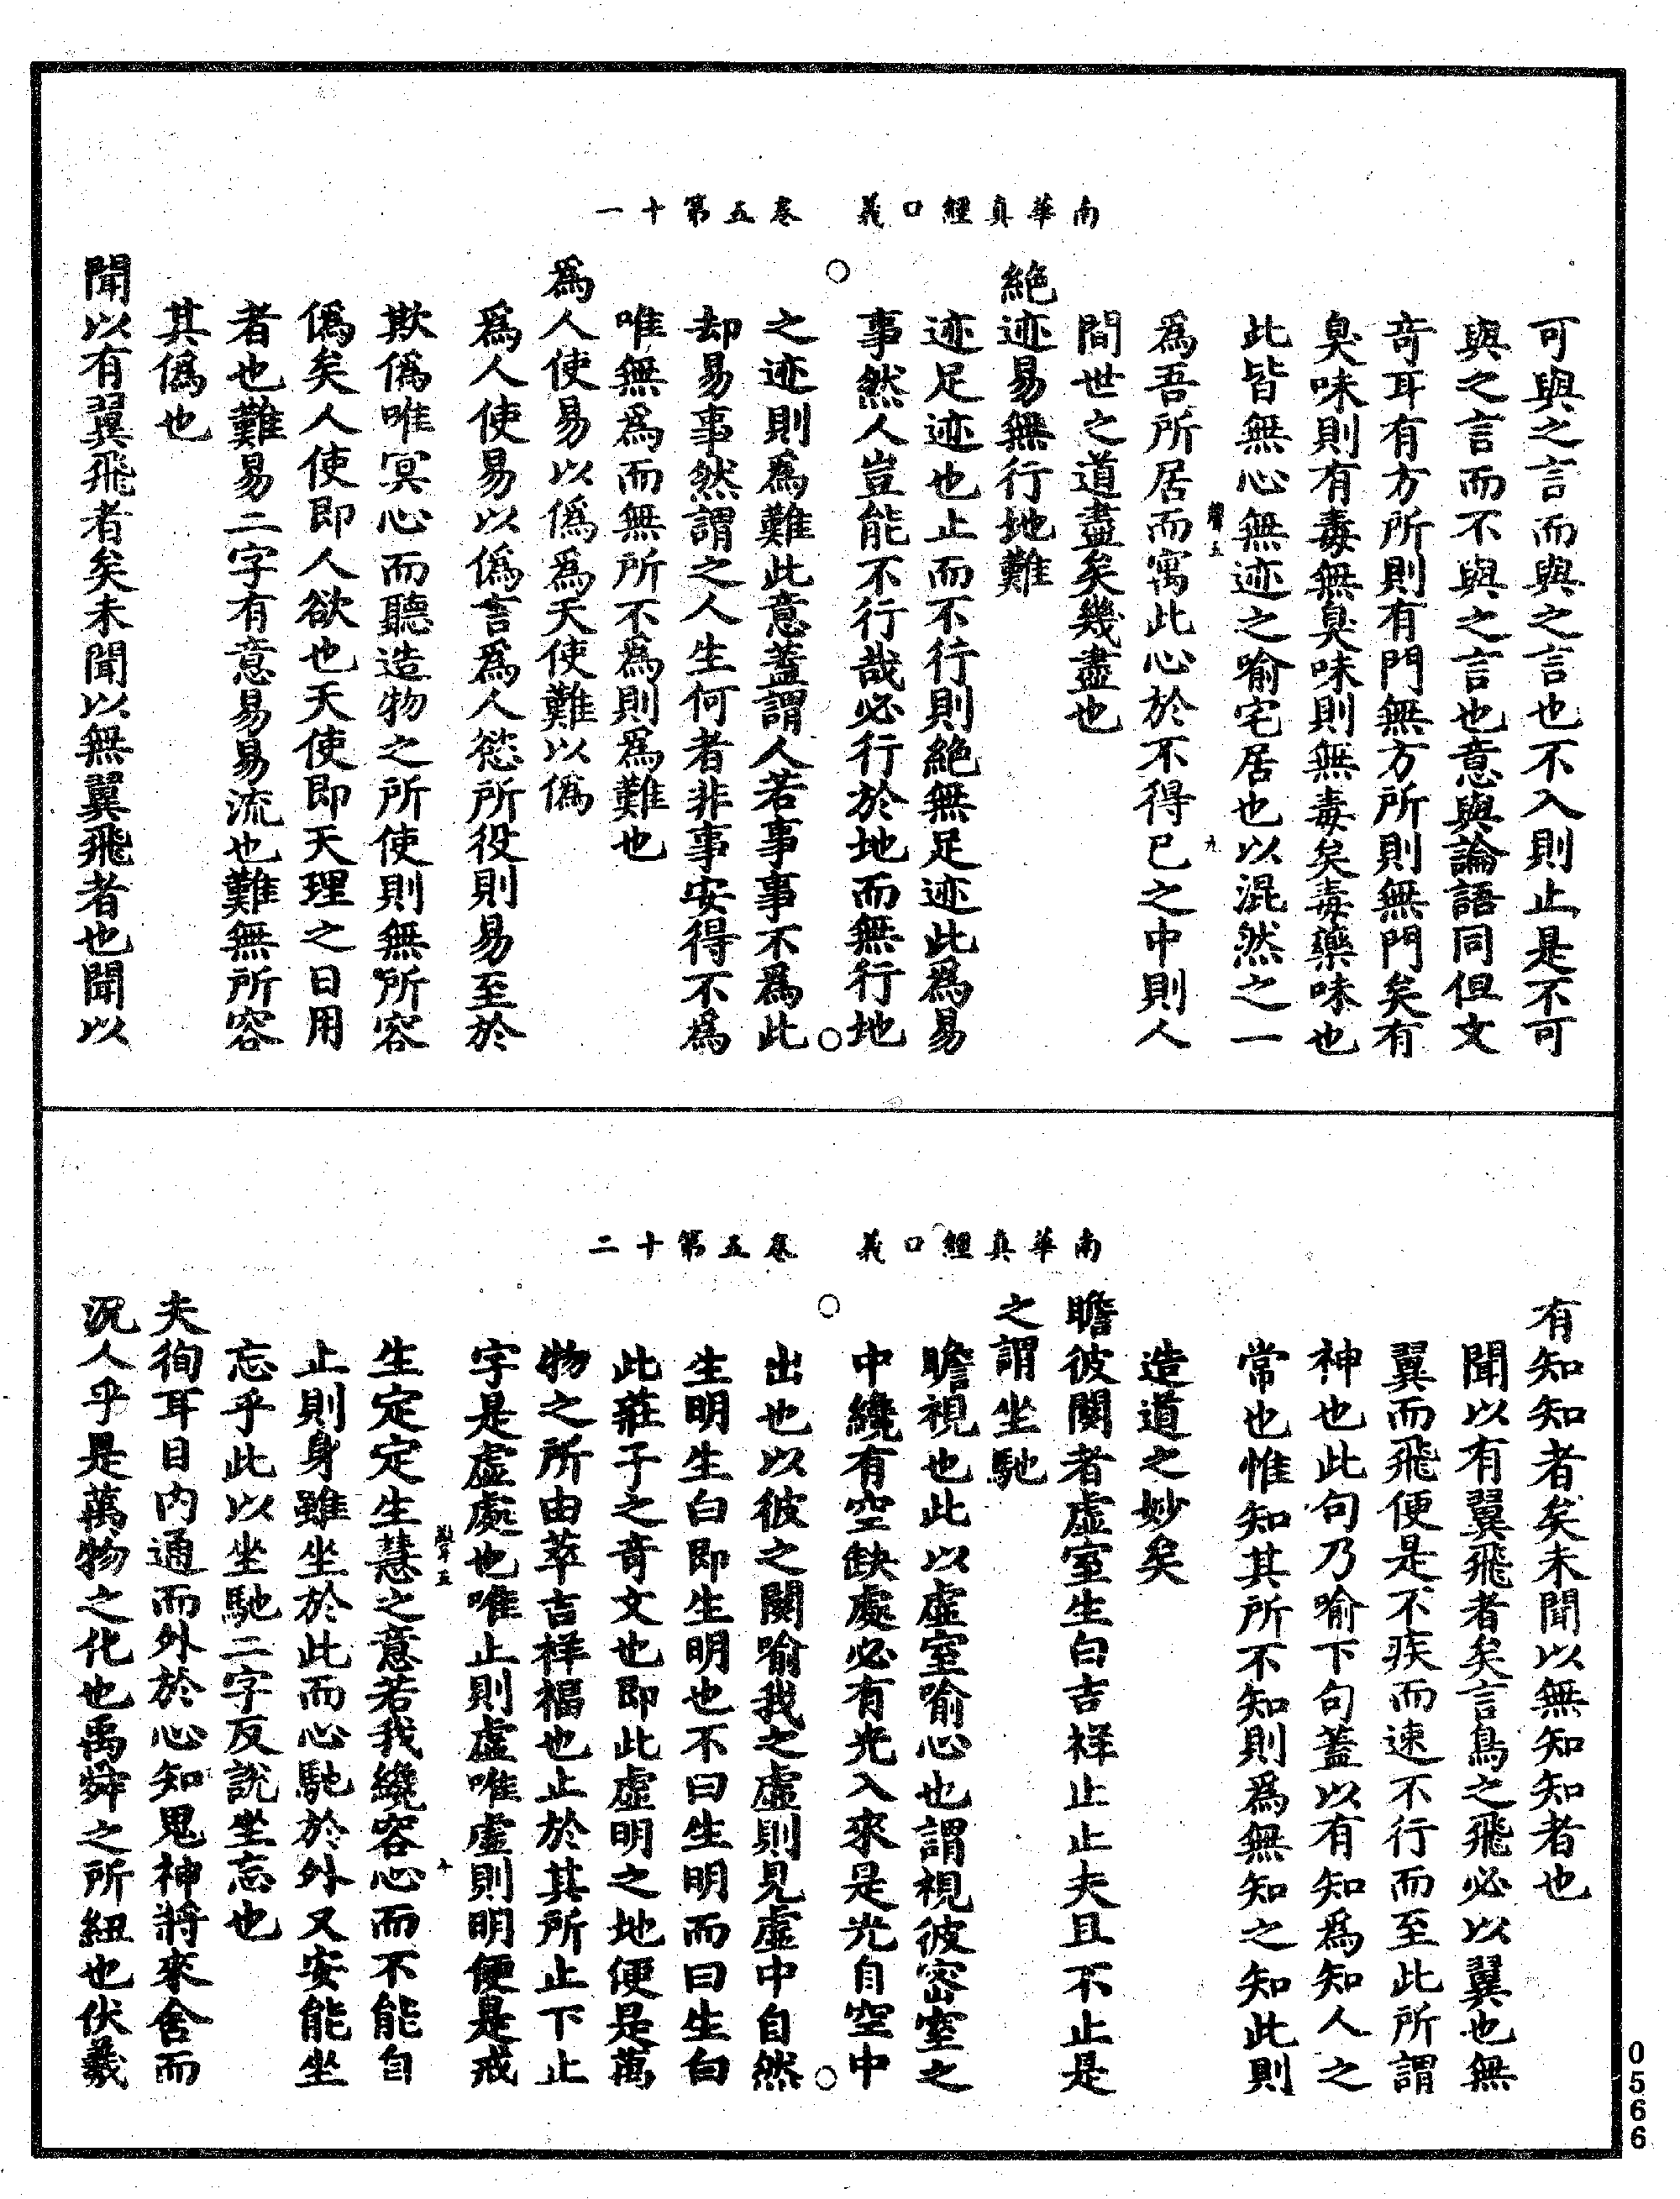 南華真經口義　卷五第十一
可與之言而與之言也不入則止是不可
與之言而不與之言也意與論語同但文
竒耳有方所則有門無方所則無門矣有
臭味則有毒無臭味則無毒矣毒藥味也
此皆無心無迹之喻宅居也以混然之一
五　九
爲吾所居而寓此心於不得已之中則人
間世之道盡矣幾盡也
絶迹易無行地難
迹足迹也止而不行則絶無足迹此爲易
事然人豈能不行哉必行於地而無行地
之迹則爲難此意蓋謂人若事事不爲此
却易事然謂之人生何者非事安得不爲
唯無爲而無所不爲則爲難也
爲人使易以僞爲天使難以僞
爲人使易以僞言爲人慾所役則易至於
欺僞唯冥心而聽造物之所使則無所容
僞矣人使即人欲也天使即天理之日用
者也難易二字有意易易流也難無所容
其僞也
聞以有翼飛者矣未聞以無翼飛者也聞以
南華真經口義　卷五第十二
有知知者矣未聞以無知知者也
聞以有翼飛者矣言鳥之飛必以翼也無
翼而飛便是不疾而速不行而至此所謂
神也此句乃喻下句蓋以有知爲知人之
常也惟知其所不知則爲無知之知此則
造道之妙矣
瞻彼闋者虛室生白吉祥止止夫且不止是
之謂坐馳
瞻視也此以虛室喻心也謂視彼密室之
中纔有空缺處必有光入來是光自空中
出也以彼之闋喻我之虛則見虛中自然
生明生白即生明也不曰生明而曰生白
此莊子之竒文也即此虛明之地便是萬
物之所由萃吉祥福也止於其所止下止
字是虛處也唯止則虛唯虛則明便是戒
生定定生慧之意若我纔容心而不能自
五　十
止則身雖坐於此而心馳於外又安能坐
忘乎此以坐馳二字反說坐忘也
夫徇耳目內通而外於心知鬼神將來舍而
況人乎是萬物之化也禹舜之所紐也伏羲
0566